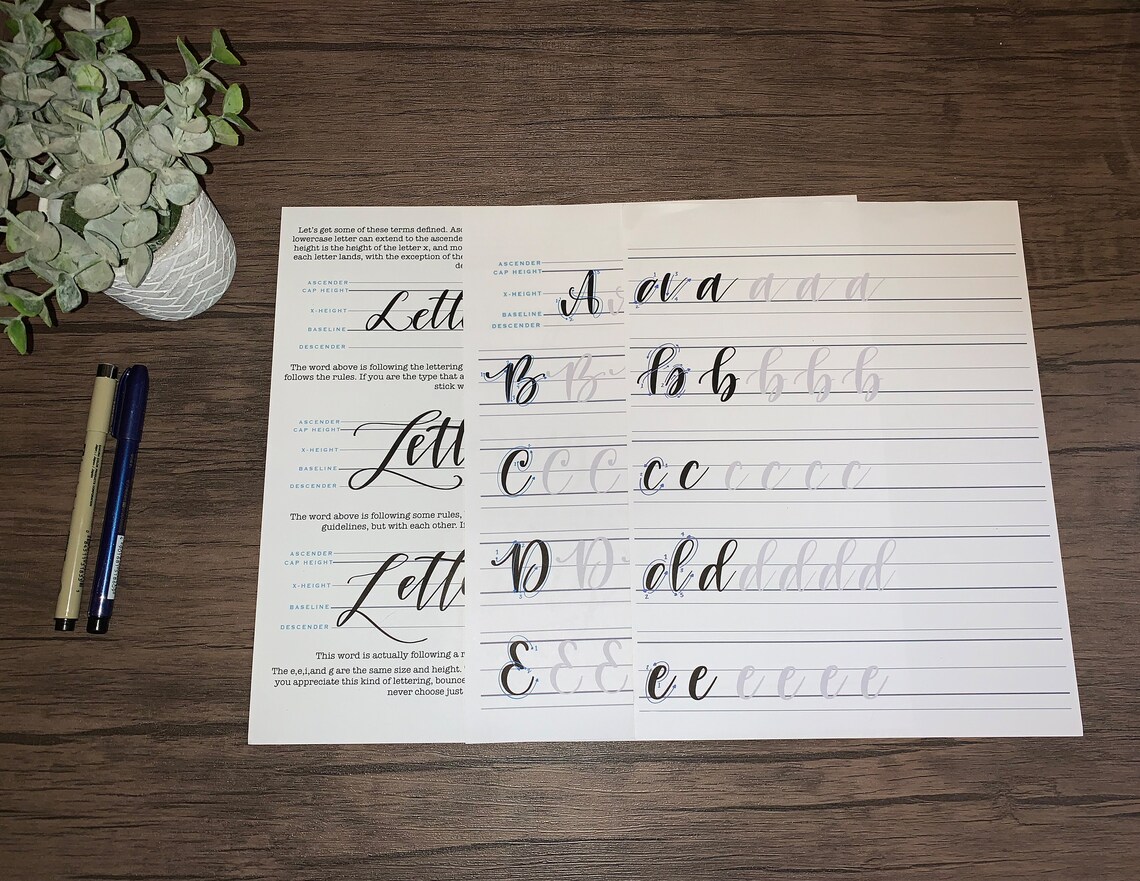 Let's get some of these terms defined.
lowercase letter can extend to the ascende
height is the height of the letter x, and mo
each letter lands, with the exception of the
de
ASCENDER
CAP HEIGHT
X-HEIGHT
BASELINE
DESCENDER
Lett
The word above is following the lettering
follows the rules. If you are the type that a
stick w
ASCENDER
CAP HEIGHT
X-HEIGHT
BASELINE
DESCENDER
Lett
The word above is following some rules,
guidelines, but with each other. If
ASCENDER
CAP HEIGHT
X-HEIGHT
BASELINE
DESCENDER
Lette
This word is actually following a
The e,e,i,and g are the same size and height.
you appreciate this kind of lettering, bounce
never choose just
ASCENDER
CAP HEIGHT
X-HEIGHT
BASELINE
DESCENDER
A
B B B
C C C
D D D
E E E
a a a a a
b b b b b
c c c c c c
d d d d d d
e e e e e e